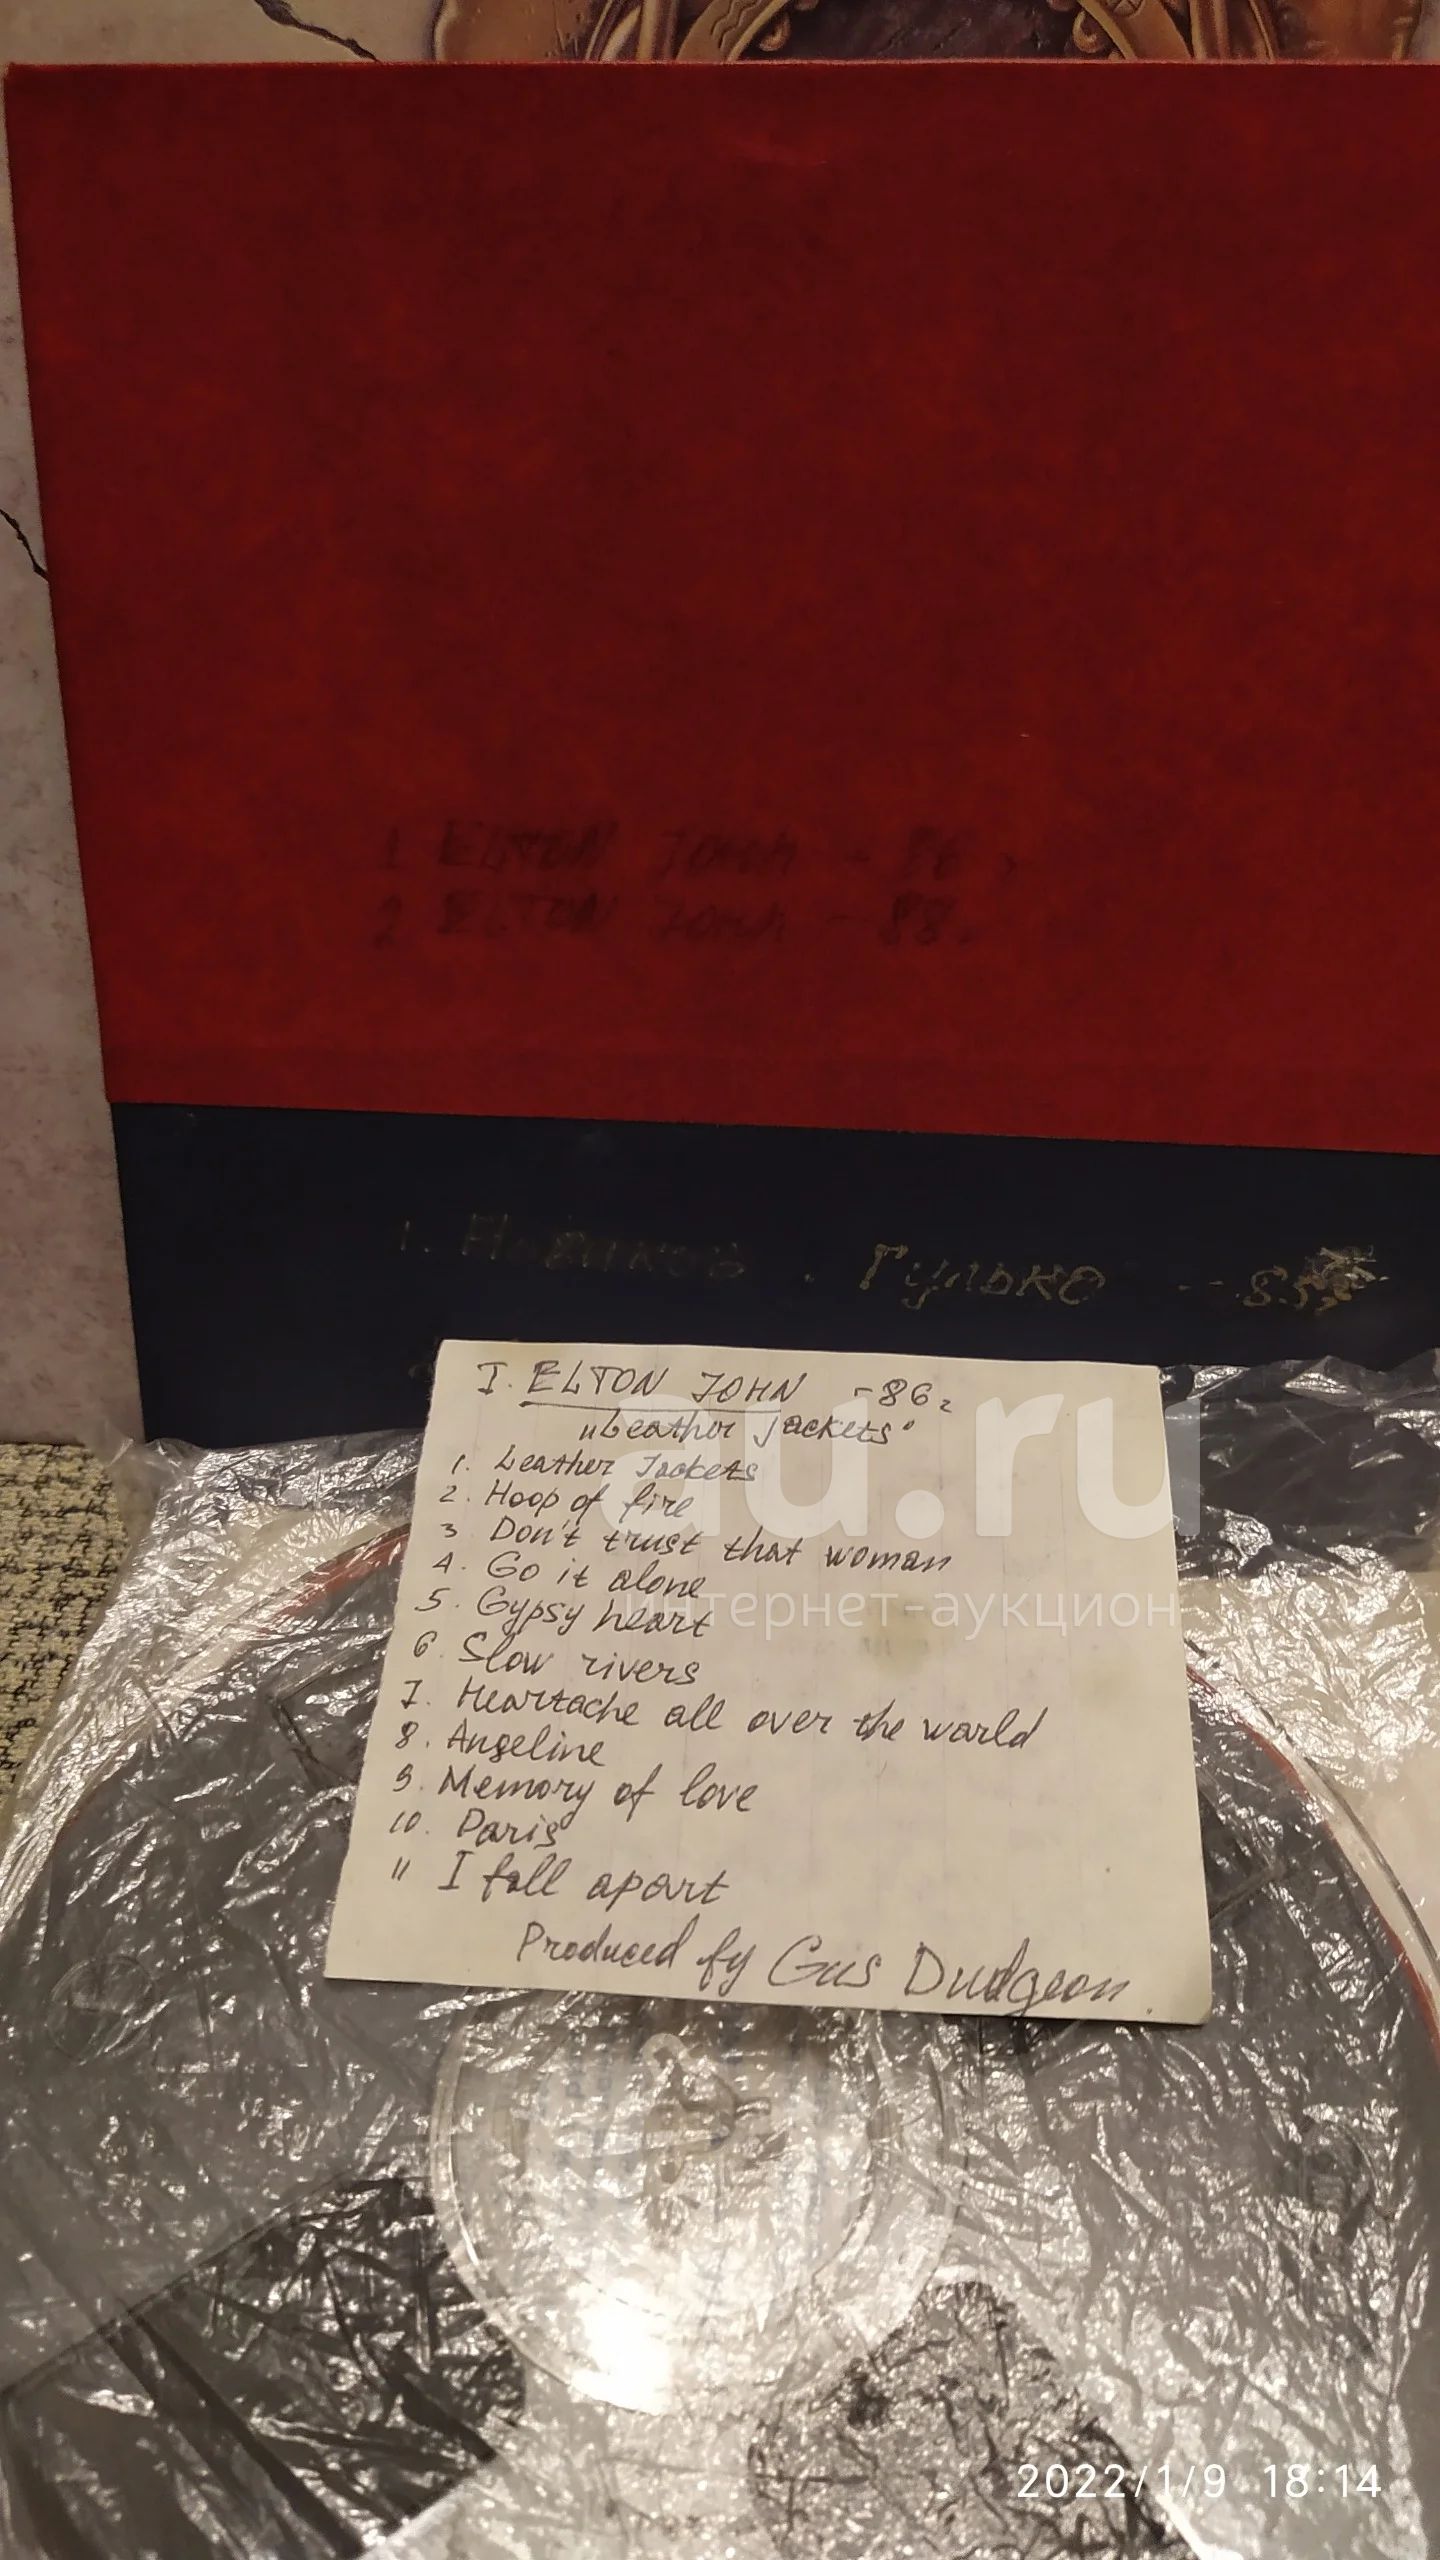 1 ELTON JOHN - 86 г
2 ELTON JOHN - 88.
1. Гулько - 85
I. ELTON JOHN - 86 г
„Leather Jackets"
1. Leather Jackets
2. Hoop of fire
3 Don't trust that woman
4. Go it alone
5. Gypsy heart
6. Slow rivers
7. Heartache all over the world
8. Angeline
9. Memory of love
10. Paris
11 I fall apart
Produced by Gus Dudgeon.
au.ru
интернет-аукцион
2022/1/9 18:14